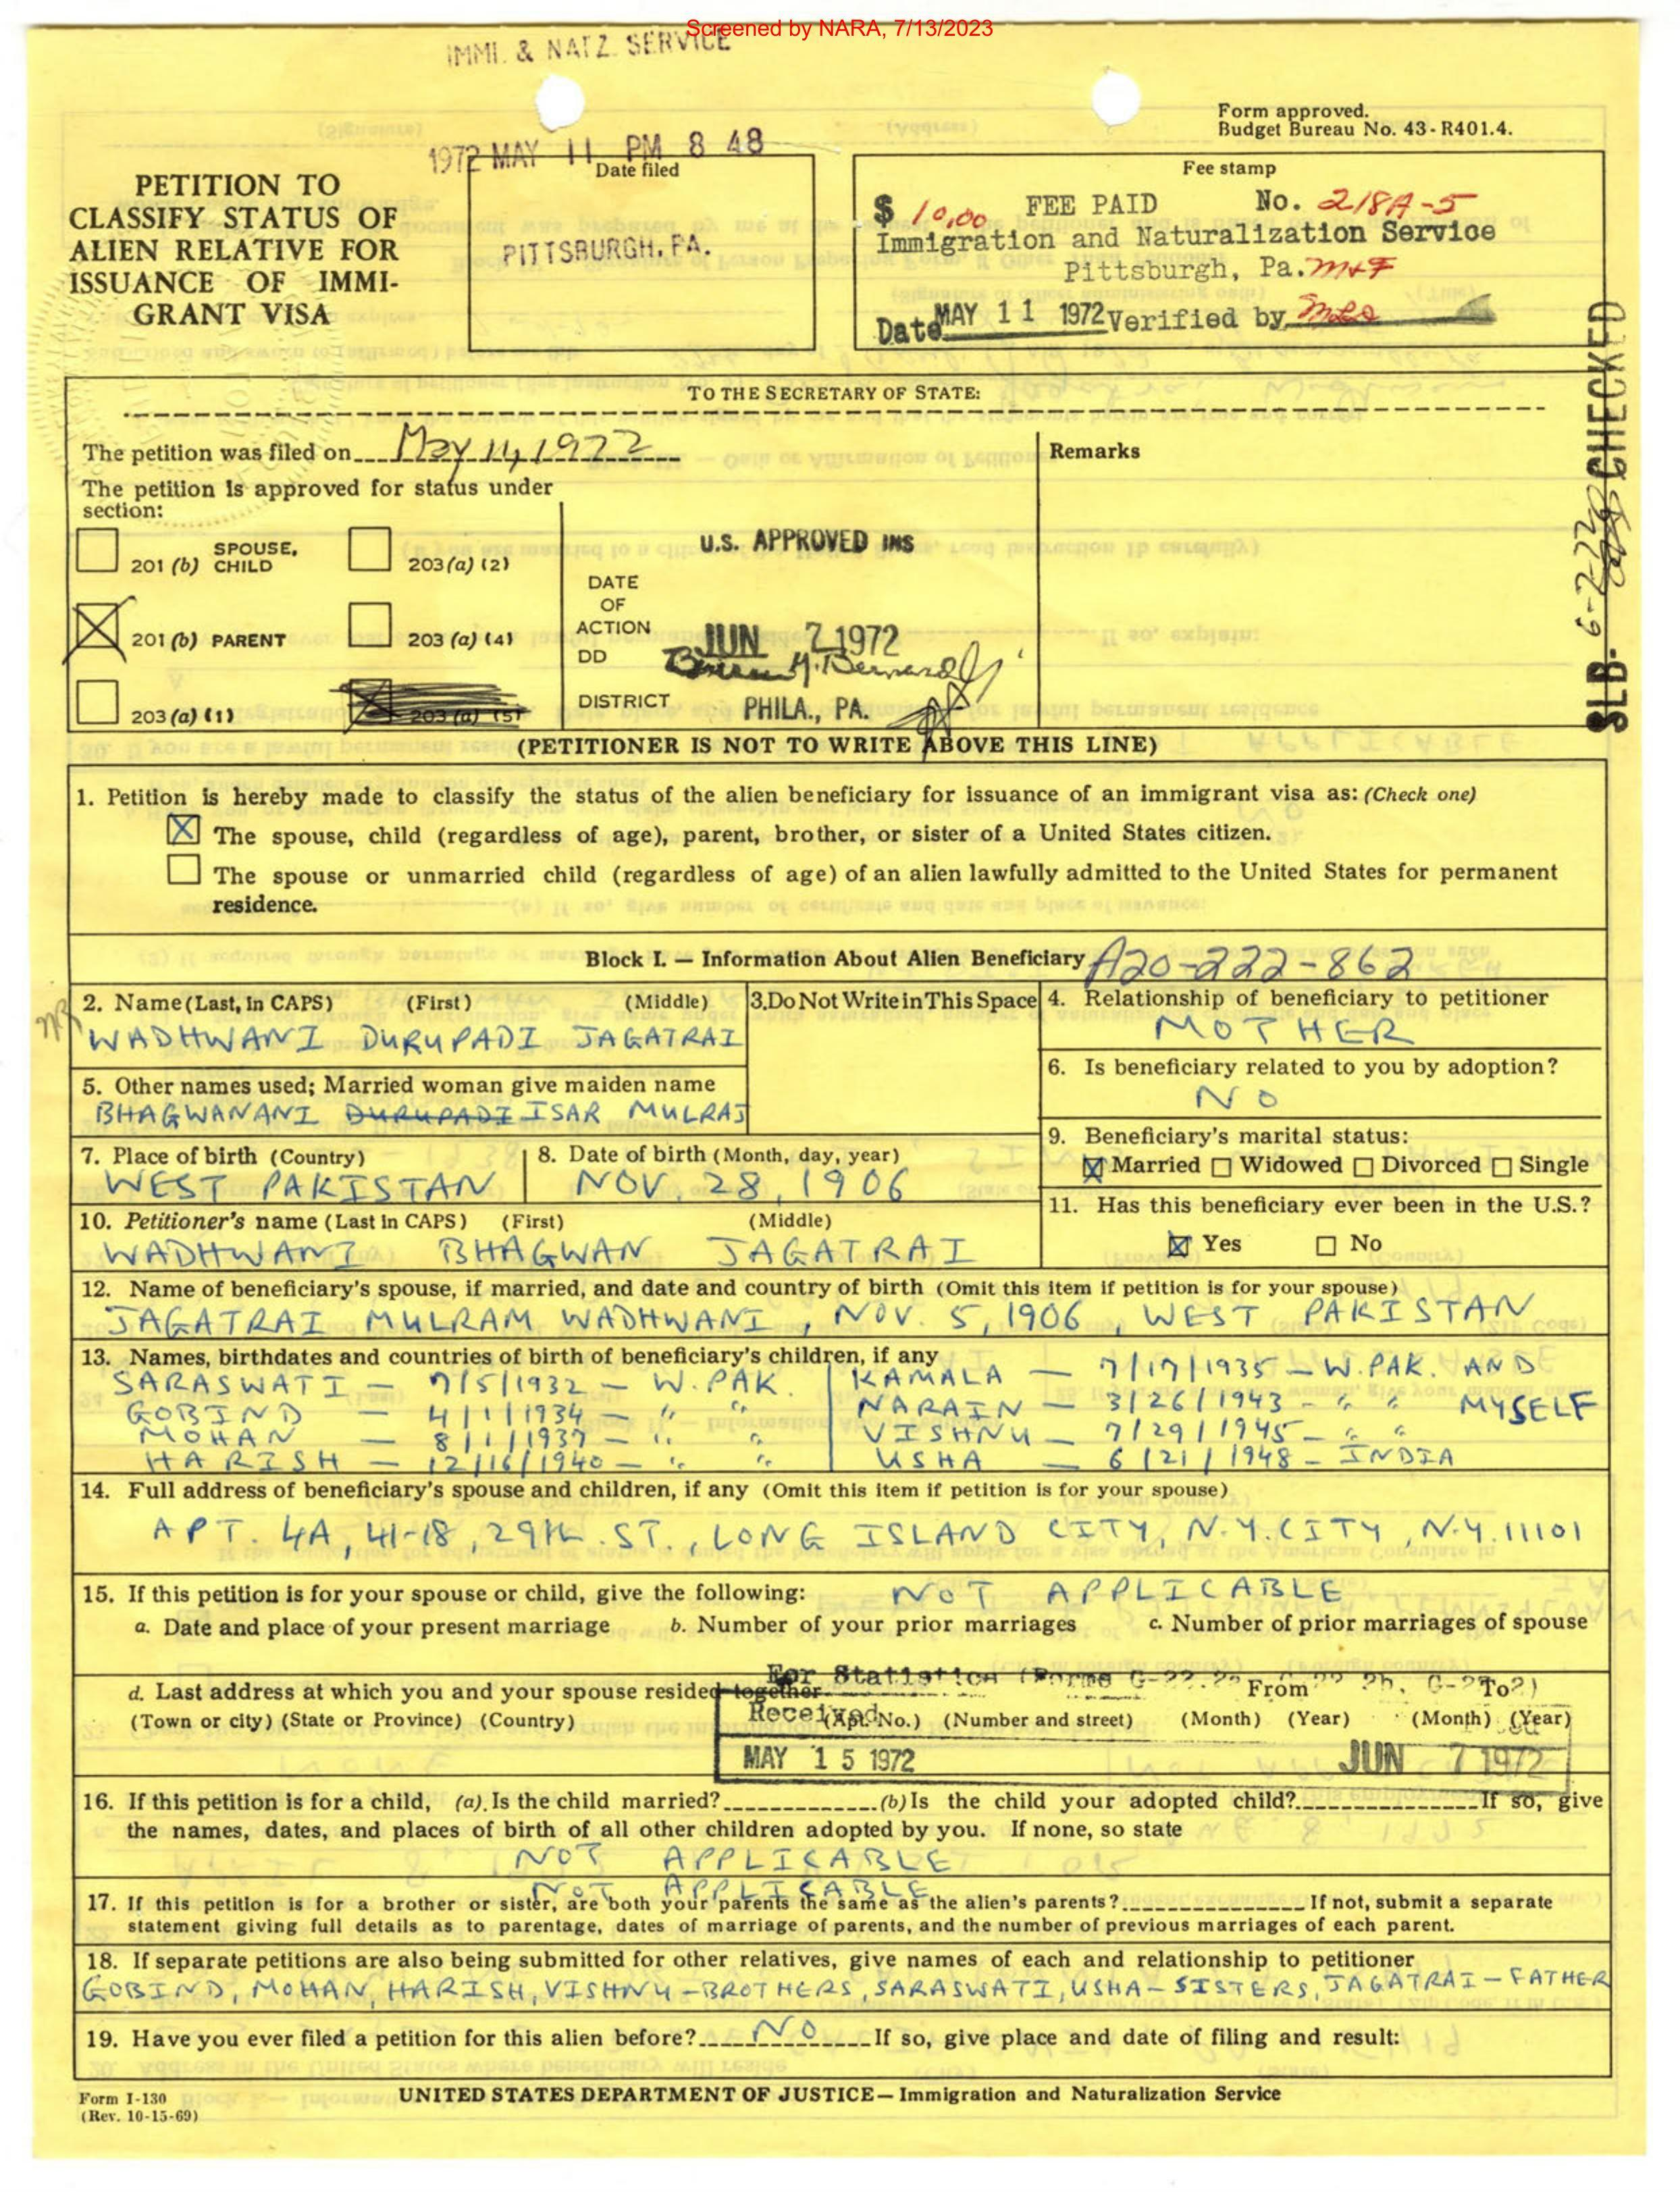 Screened by NARA, 7/13/2023
IMMI. & NATZ. SERVICE
Form approved.
Budget Bureau No. 43-R401.4.
1972 MAY 11 PM 8 48
PETITION TO
CLASSIFY STATUS OF
ALIEN RELATIVE FOR
ISSUANCE OF IMMI-
GRANT VISA
Date filed
PITTSBURGH, PA.
Fee stamp
$ 10.00 FEE PAID No. 218A-5
Immigration and Naturalization Service
Pittsburgh, Pa.
Date MAY 11 1972 Verified by
SLB- 6-2-72 CHECKED
TO THE SECRETARY OF STATE:
The petition was filed on May 11, 1972
Remarks
The petition is approved for status under
section:
201 (b) SPOUSE, CHILD
203 (a) (2)
201 (b) PARENT
203 (a) (4)
203 (a) (1)
203 (a) (5)
U.S. APPROVED INS
DATE
OF
ACTION
JUN 7 1972
DD
DISTRICT PHILA., PA.
(PETITIONER IS NOT TO WRITE ABOVE THIS LINE)
1. Petition is hereby made to classify the status of the alien beneficiary for issuance of an immigrant visa as: (Check one)
X The spouse, child (regardless of age), parent, brother, or sister of a United States citizen.
The spouse or unmarried child (regardless of age) of an alien lawfully admitted to the United States for permanent
residence.
Block I. — Information About Alien Beneficiary A20-222-862
2. Name (Last, in CAPS) (First) (Middle)
WADHWANI DURUPADI JAGATRAI
3. Do Not Write in This Space
4. Relationship of beneficiary to petitioner
MOTHER
5. Other names used; Married woman give maiden name
BHAGWANANI DURUPADI ISAR MULRAJ
6. Is beneficiary related to you by adoption?
NO
7. Place of birth (Country)
WEST PAKISTAN
8. Date of birth (Month, day, year)
NOV. 28, 1906
9. Beneficiary's marital status:
X Married Widowed Divorced Single
10. Petitioner's name (Last in CAPS) (First) (Middle)
WADHWANI BHAGWAN JAGATRAI
11. Has this beneficiary ever been in the U.S.?
X Yes No
12. Name of beneficiary's spouse, if married, and date and country of birth (Omit this item if petition is for your spouse)
JAGATRAI MULRAM WADHWANI, NOV. 5, 1906, WEST PAKISTAN
13. Names, birthdates and countries of birth of beneficiary's children, if any
SARASWATI — 7/5/1932 — W. PAK. KAMALA — 7/17/1935 — W. PAK. AND
GOBIND — 4/1/1934 — " " NARAIN — 3/26/1943 - " " MYSELF
MOHAN — 8/1/1937 — " " VISHNU — 7/29/1945 - " "
HARISH — 12/16/1940 — " " USHA — 6/21/1948 - INDIA
14. Full address of beneficiary's spouse and children, if any (Omit this item if petition is for your spouse)
APT. 4A, 41-18, 29th. ST., LONG ISLAND CITY, N.Y. CITY, N.Y. 11101
15. If this petition is for your spouse or child, give the following: NOT APPLICABLE
a. Date and place of your present marriage b. Number of your prior marriages c. Number of prior marriages of spouse
For Statistics (Forms G-22.2,
d. Last address at which you and your spouse resided together From To
(Town or city) (State or Province) (Country) (Apt. No.) (Number and street) (Month) (Year) (Month) (Year)
Received
MAY 15 1972 JUN 7 1972
16. If this petition is for a child, (a). Is the child married? (b) Is the child your adopted child? If so, give
the names, dates, and places of birth of all other children adopted by you. If none, so state
NOT APPLICABLE
NOT APPLICABLE
17. If this petition is for a brother or sister, are both your parents the same as the alien's parents? If not, submit a separate
statement giving full details as to parentage, dates of marriage of parents, and the number of previous marriages of each parent.
18. If separate petitions are also being submitted for other relatives, give names of each and relationship to petitioner
GOBIND, MOHAN, HARISH, VISHNU - BROTHERS, SARASWATI, USHA - SISTERS, JAGATRAI - FATHER
19. Have you ever filed a petition for this alien before? NO If so, give place and date of filing and result:
Form I-130
(Rev. 10-15-69)
UNITED STATES DEPARTMENT OF JUSTICE — Immigration and Naturalization Service